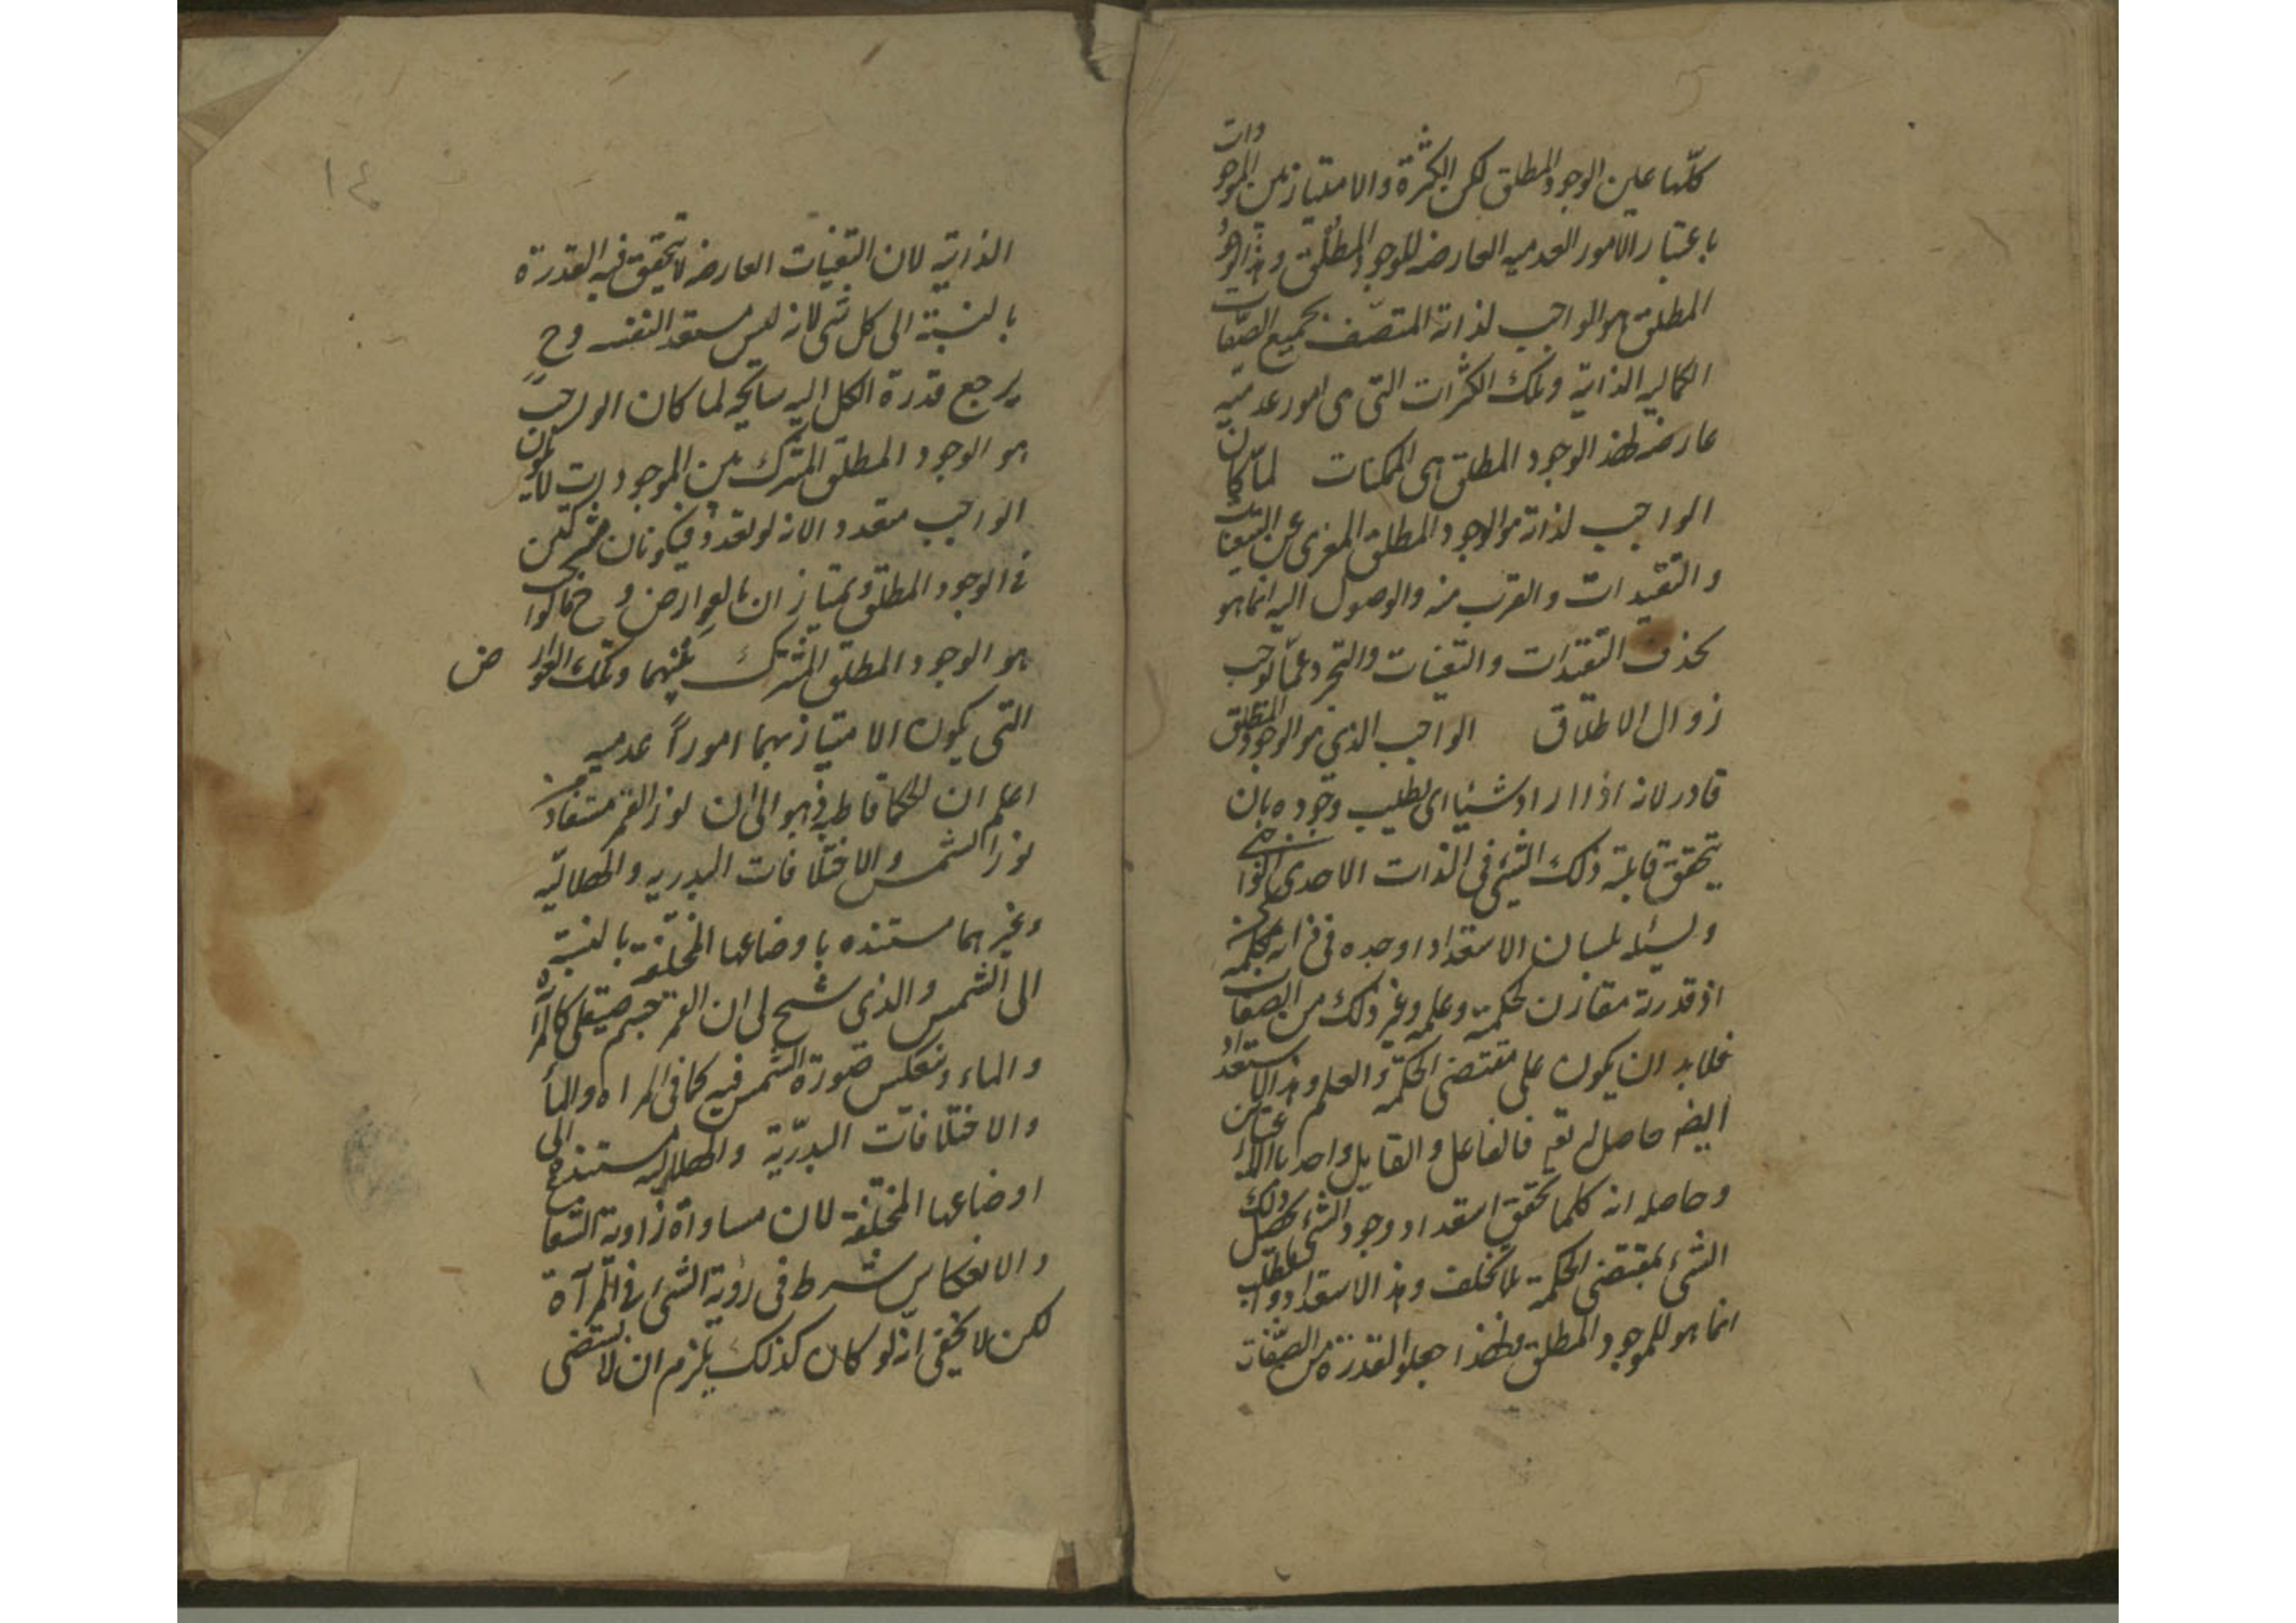 كلّها عين الوجود المطلق لكن الكثرة والامتياز بين الموجودات
باعتبار الامور العدميه العارضه للوجود المطلق وهذا الوجود
المطلق هو الواجب لذاته المتصّف بجميع الصّفات
الكماليه الذاتية وتلك الكثرات التى هى امور عدميه
عارضه لهذا الوجود المطلق هى الممكنات لمّا كان
الواجب لذاته هو الوجود المطلق المعرى عن التعينات
والتقيدات والقرب منه والوصول اليه انما هو
بحذف التقيدات والتعينات والتجرد عمّا يوجب
زوال الاطلاق الواجب الذى هو الوجود المطلق
قادر لانه اذا اراد شيئا اى يطلب وجوده بان
يتحقق قابلية ذلك الشئ فى الذات الاحدى
ويسئله بلسان الاستعداد اوجده فى
اذ قدرته مقارن لحكمته وعلمه وغير ذلك من الصفات
فلابد ان يكون على مقتضى الحكمة والعلم وهذا الاستعداد
ايضه حاصل له تعه فالفاعل والقابل واحد
وحاصله انه كلما تحقق استعداد وجود الشئ يحصل ذلك
الشئ بمقتضى الحكمة بلا تخلف وهذا الاستعداد والطلب
انما هو للموجود المطلق ولهذا جعلوا القدرة من الصّفات
١٤
الذاتية لان التعينات العارضه لا يتحقق فيه القدرة
بالنسبة الى كل شى لانه ليس مستعد النفسه وح
يرجع قدرة الكل اليه سانحه لما كان الواجب
هو الوجود المطلق المشترك بين الموجودات لا يكون
الواجب متعددا لانه لو تعدد فيكونان مشتركين
فى الوجود المطلق ويمتازان بالعوارض وح فالواجب
هو الوجود المطلق المشترك بينهما وتلك العوارض
التى يكون الامتياز بهما اموراً عدميه
اعلم ان الحكما قاطبة ذهبوا الى ان نور القمر مستفاد من
نور الشمس والاختلافات البدريه والهلاليّه
وغيرهما مستنده باوضاعها المختلفة بالنسبة
الى الشمس والذى سنح لى ان القمر جسم صيقلى كالمرآه
والماء وتنعكس صورة الشمس فيه كما فى المراه والماء
والاختلافات البدرّية والهلاليه مستنده الى
اوضاعها المختلفة لان مساواة زاوية الشعاع
والانعكاس شرط فى رؤية الشئ فى المرآة
لكن لا يخفى انه لو كان كذلك يلزم ان لا يستضى